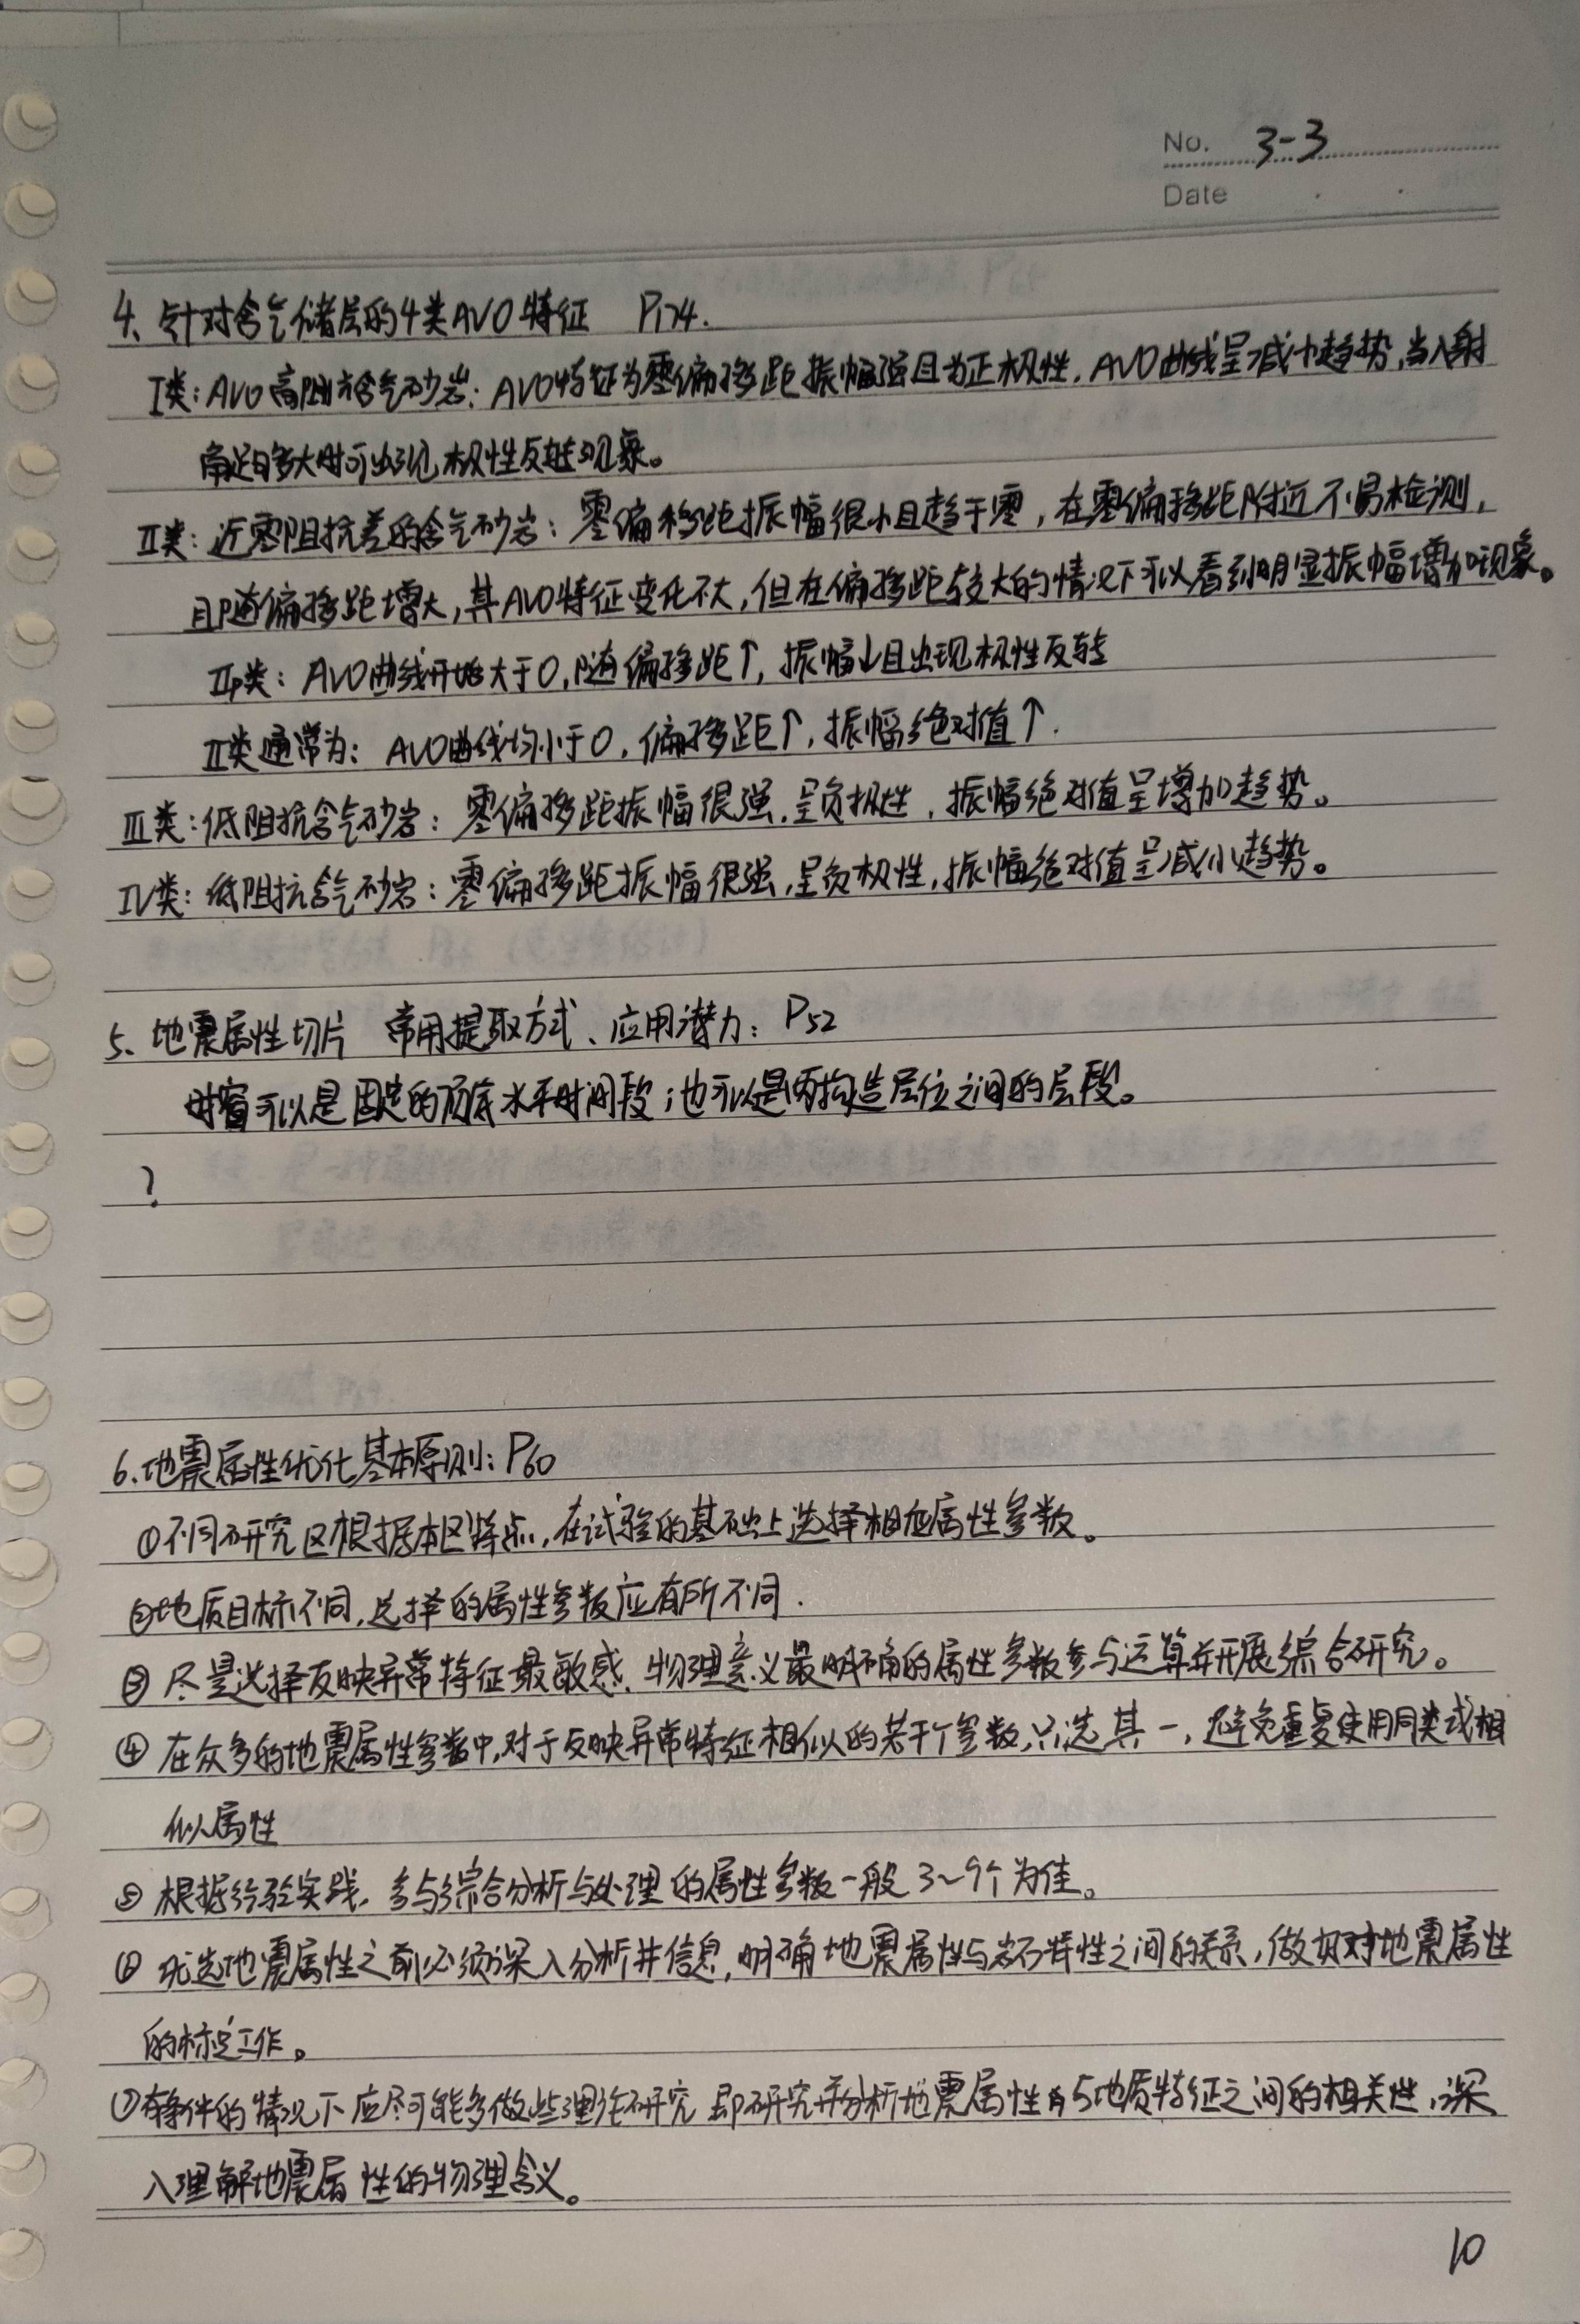 No. 3-3
Date
4、针对含气储层的4类AVO特征 P174.
I类：AVO高阻抗含气砂岩：AVO特征为零偏移距振幅强且为正极性，AVO曲线呈减小趋势，当入射
角足够大时可出现极性反转现象。
II类：近零阻抗差的含气砂岩：零偏移距振幅很小且趋于零，在零偏移距附近不易检测，
且随偏移距增大，其AVO特征变化不大，但在偏移距较大的情况下可以看到明显振幅增加现象。
IIp类：AVO曲线开始大于0，随偏移距↑，振幅↓且出现极性反转
II类通常为：AVO曲线均小于0，偏移距↑，振幅绝对值↑.
III类：低阻抗含气砂岩：零偏移距振幅很强，呈负极性，振幅绝对值呈增加趋势。
IV类：低阻抗含气砂岩：零偏移距振幅很强，呈负极性，振幅绝对值呈减小趋势。
5、地震属性切片 常用提取方式、应用潜力：P52
时窗可以是固定的顶底水平时间段；也可以是两构造层位之间的层段。
?
6.地震属性优化基本原则：P60
①不同研究区根据本区特点，在试验的基础上选择相应属性参数。
②地质目标不同，选择的属性参数应有所不同.
③尽量选择反映异常特征最敏感、物理意义最明确的属性参数参与运算并开展综合研究。
④在众多的地震属性参数中，对于反映异常特征相似的若干个参数，只选其一，避免重复使用同类或相
似属性
⑤根据经验实践，参与综合分析与处理的属性参数一般3~9个为佳。
⑥优选地震属性之前必须深入分析井信息，明确地震属性与岩石特性之间的关系，做好对地震属性
的标定工作。
⑦有条件的情况下应尽可能多做些理论研究 即研究并分析地震属性与地质特征之间的相关性，深
入理解地震属性的物理含义。
10